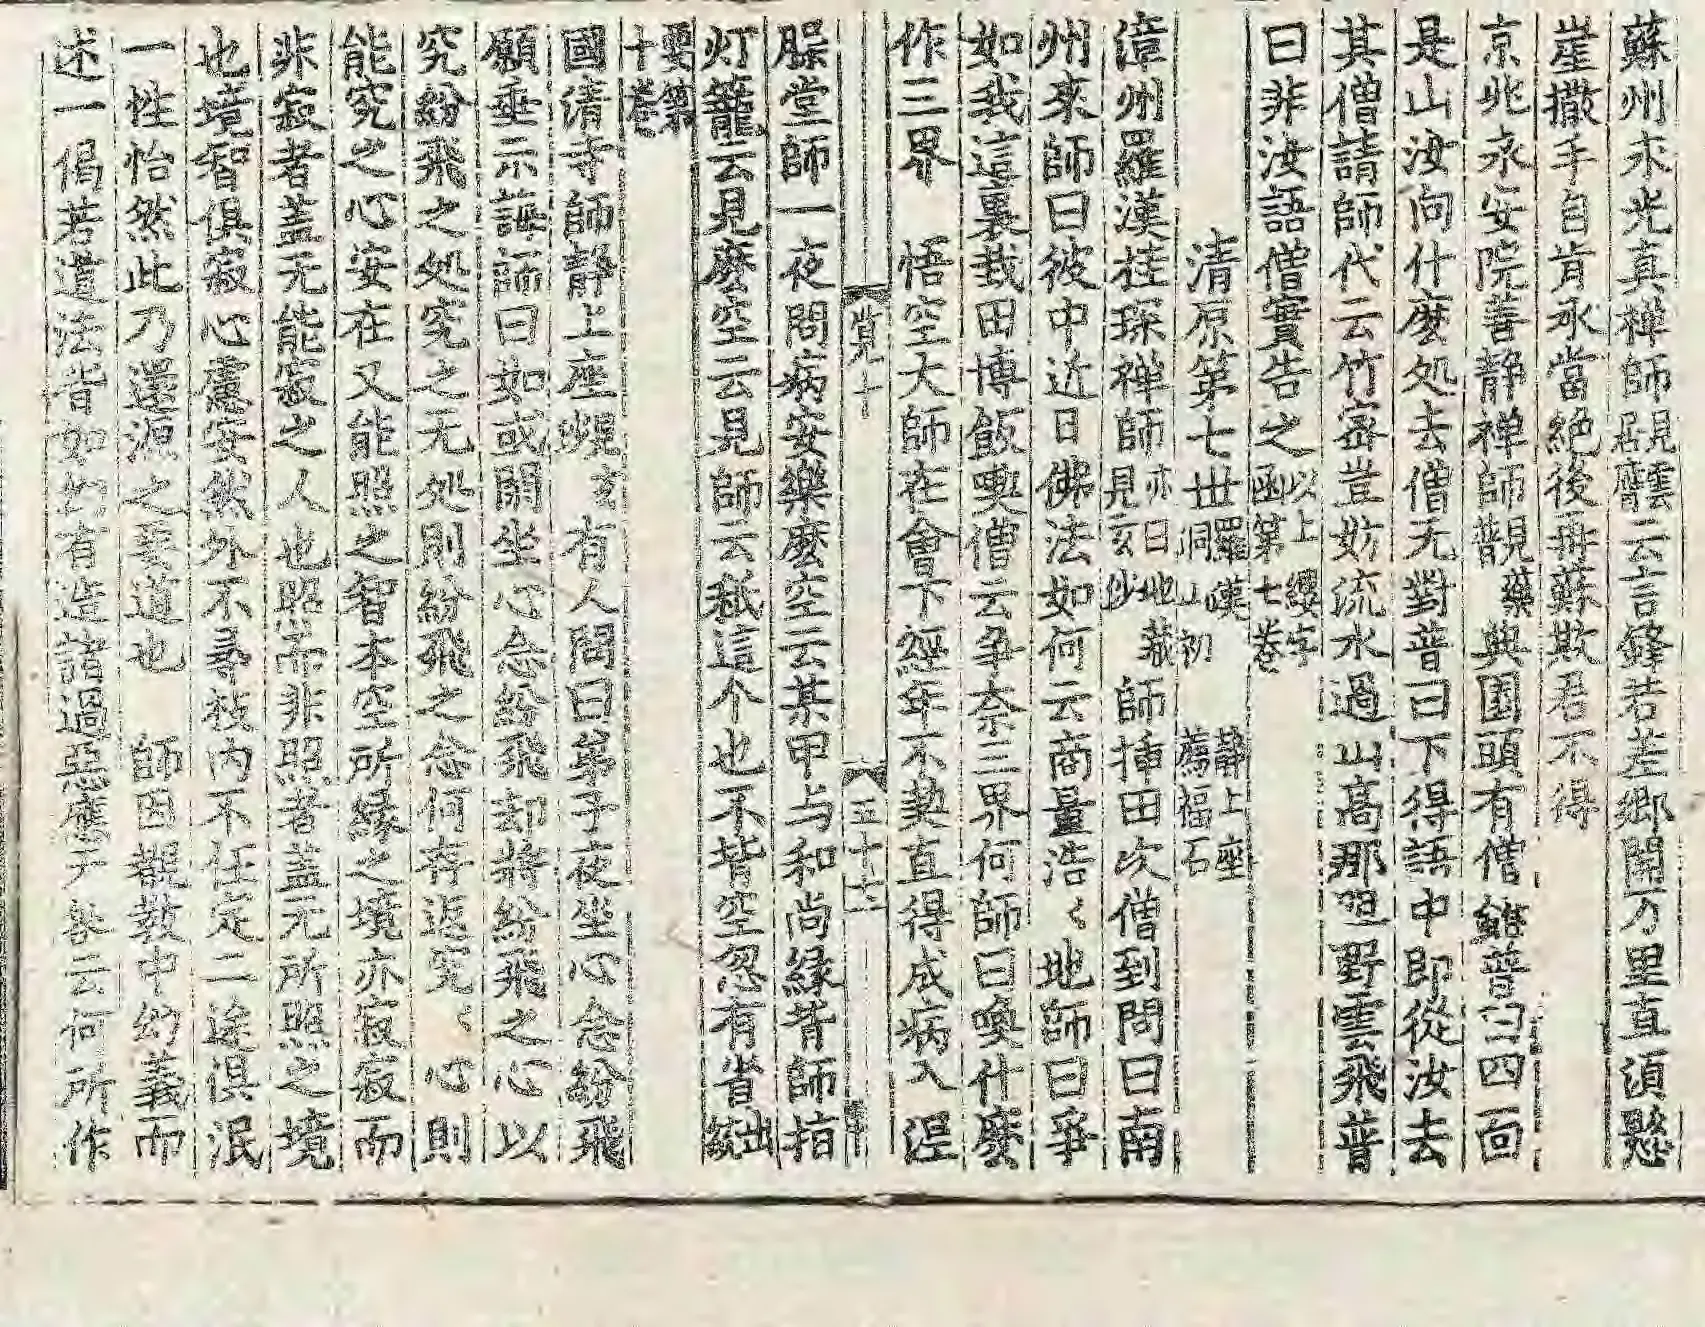 蘇州永光真禅師覩䨥云言鋒若差郷関万里直湏懸
崖撒手自肯承當絶後再蘇欺君不得
京兆永安院善静禅師覲藥 典園頭有僧䛕普曰四面
是山汝向什麽処去僧无對普曰下得語中即從汝去
其僧請師代云竹宻豈妨流水過山髙那𨔝野雲飛普
曰非汝語僧實告之以上纓字函第七巻
清原第七世羅漢洞山初 静上座薦福石
漳州羅漢桂琛禅師亦曰地藏見玄沙 師揷田次僧到問曰南
州來師曰彼中近日佛法如何云商量浩〻地師曰爭
如我這裏栽田博飯喫僧云争奈三界何師曰喚什麽
作三界 悟空大師在會下經年不契直得成病入涅
覽十 五十六
槃堂師一夜問病安樂麽空云某甲与和尚縁昔師指
灯籠云見麽空云見師云秖這个也不昔空忽有省出統
要第十巻
國清寺師静上座𠁼玄 有人問曰弟子夜坐心念紛飛
願垂示誨師曰如或閑坐心念紛飛却將紛飛之心以
究紛飛之処究之无処則紛飛之念何存返究〻心則
能究之心安在又能照之智本空所縁之境亦寂寂而
非寂者盖无能寂之人也照而非照者盖元所照之境
也境智俱寂心慮安然外不尋枝内不住定二途俱泯
一性怡然此乃還源之要道也 師因覩教中幻義而
述一偈若道法皆如幻有造諸過惡應无咎云何所作